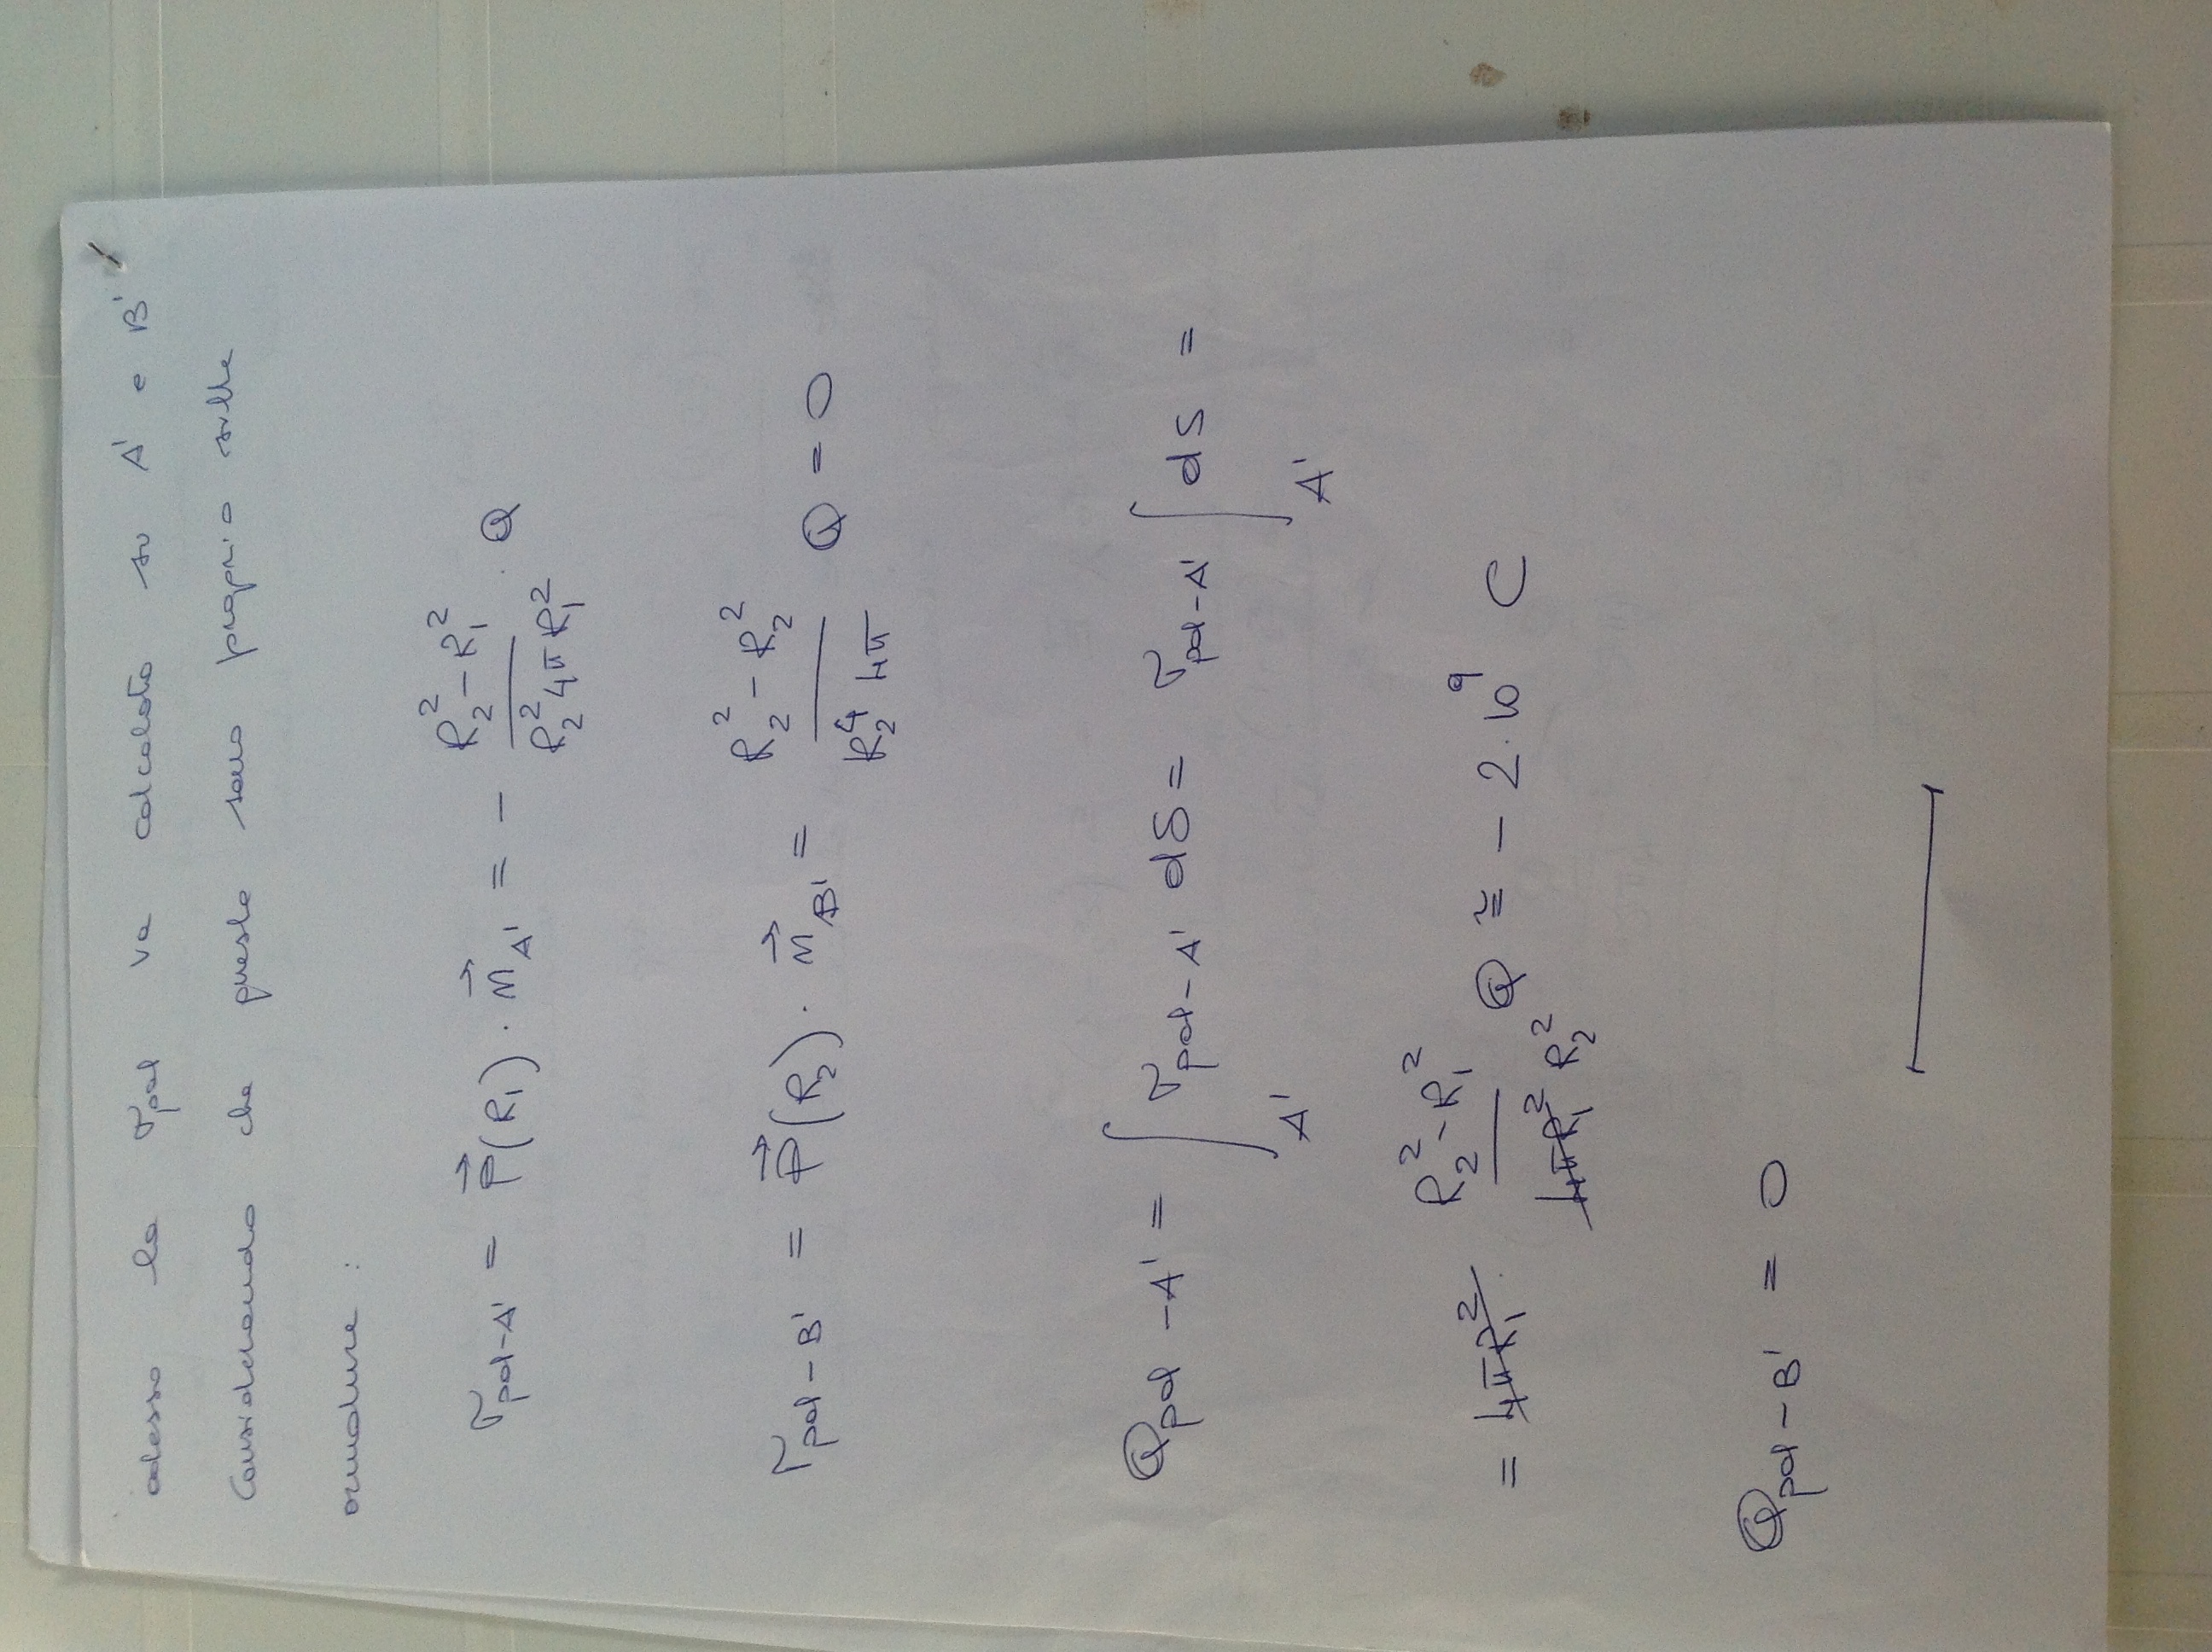 adesso la σpol va calcolata su A' e B'
Considerando che queste sono proprio sulle
armature :
σpol-A' = P⃗(R₁) · n⃗A' = - (R₂² - R₁²)/(R₂² 4π R₁²) · Q
σpol-B' = P⃗(R₂) · n⃗B' = (R₂² - R₂²)/(R₂⁴ 4π) Q = 0
Qpol-A' = ∫A' σpol-A' dS = σpol-A' ∫A' dS =
= 4πR₁² · (R₂² - R₁²)/(4πR₁² R₂²) Q ≅ - 2 · 10⁹ C
Qpol-B' = 0